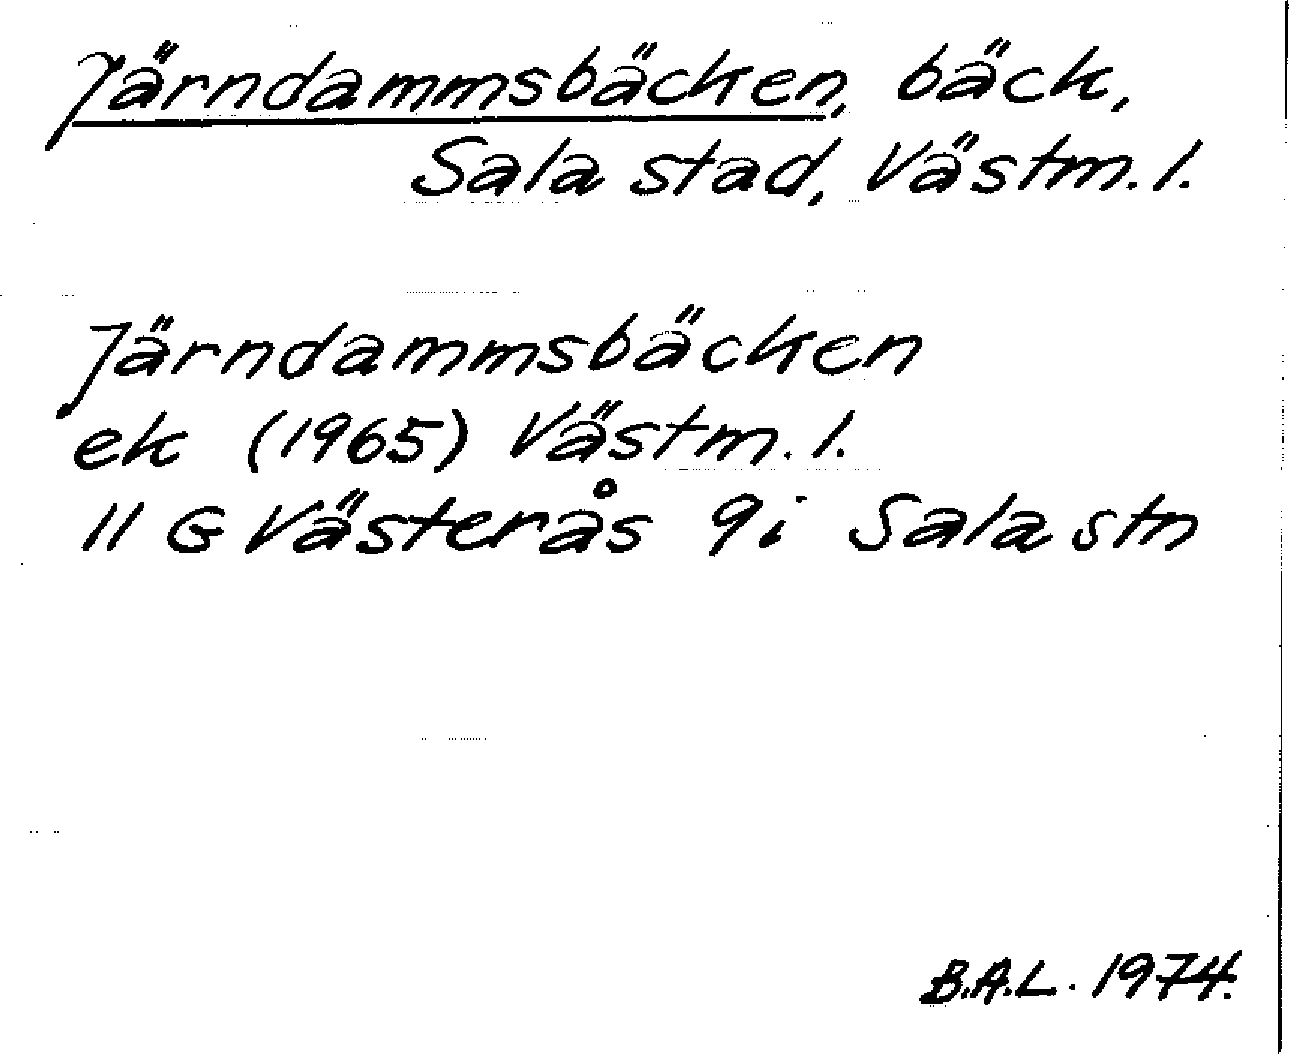 Järndammsbäcken, bäck,
Sala stad, Västm. l.
Järndammsbäcken
ek (1965) Västm. l.
11 G Västerås 9i Sala stn
B.A.L. 1974.